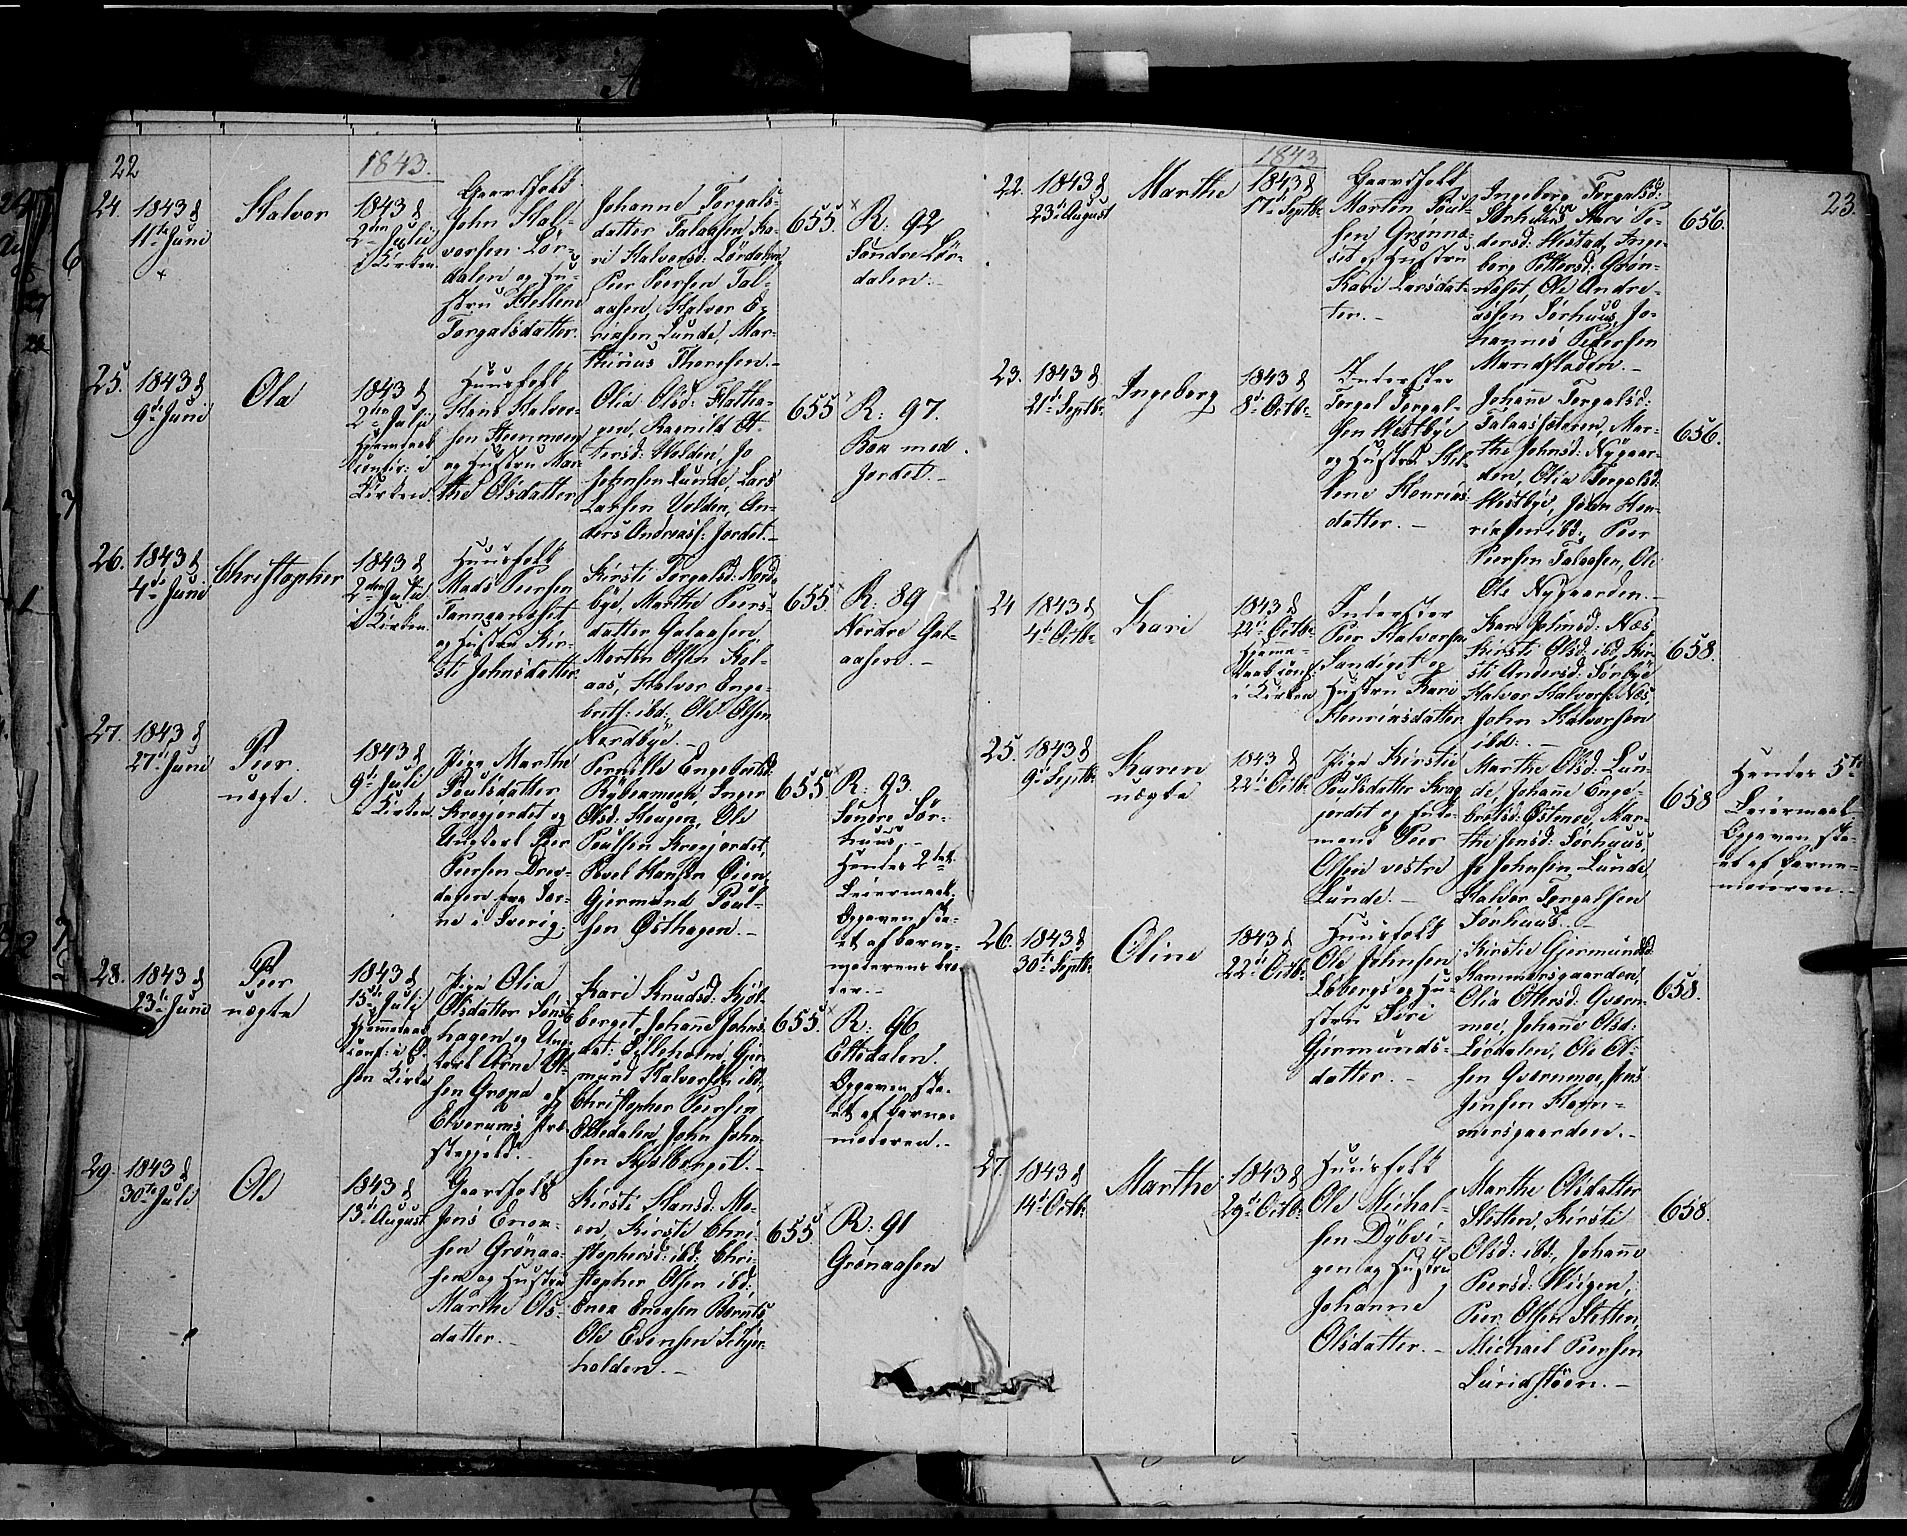 22
1843.
24.
1843 d
11te Juni
Halvor
1843 d
2den Juli
i Kirken.
Gaardfolk
John Hal-
vorsen Lør-
dalen og Hu-
stru Helline
Torgalsdatter.
Johanne Torgals-
datter Galaasen, Ka-
ri Halvorsd: Lørdalen,
Peer Peersen Gal-
aasen, Halvor E-
riksen Lunde, Mar-
thinus Thoresen.
655.
R: 92
Søndre Lør-
dalen.
25.
1843 d
9de Juni
Ola
1843 d
2den Juli
Hjemdøbt
confir: i
Kirken
Huusfolk
Hans Halvor-
sen
og Hustru Mar-
the Olsdatter
Olia Olsd: Flatha-
gen, Ragnild Ot-
tersd: Volden, Jo
Johnsen Lunde, Lars
Larsen Volden, An-
ders Andreass: Jordet.
655
R: 97.
Boe med
Jordet.
26.
1843 d
4de Juni
Christopher
1843 d
2den Juli
i Kirken.
Huusfolk
Mads Peersen
og Hustru Kir-
sti Johnsdatter
Kirsti Torgalsd: Nord-
bye, Marthe Peers-
datter Galaasen,
Morten Olsen Gal-
aas, Halvor Enge-
brits: ibd: Ole Olsen
Nordbye.
655
R: 89
Nordre Gal-
aasen.
27.
1843 d
27de Juni
Peer
uægte.
1843 d
9de Juli
i Kirken.
Pige Marthe
Poulsdatter
Kregjordet og
Ungkarl Peer
Peersen Drev-
dalen fra Sær-
ne i Sverig.
Pernille Engebretsd:
Olsd: Haugen, Ole
Poulsen Kregjordet,
Poul Hansen Øien
Gjermund Poul-
sen Østhagen.
655
R: 93.
Søndre Sør-
huus.
Hendes 2det
Leiermaal.
Opgaven ska-
et af barne-
moderens bro-
der.
28.
1843 d
23de Juni
Peer
uægte
1843 d
15de Juli
Hjemmedøbt
conf: i
Kirke
Pige Olia
Olsdatter Sønst-
hagen og Ung-
karl Arne Ol-
sen Grøna af
Elverums Præ-
stegjeld.
Kari Knudsd: Kjøl-
berget, Johanne Johns-
dat: Elleholen, Gjer-
mund Halvorsen ibd:
Christopher Peersen
Eltdalen, John John-
sen Kjølberget.
655.
R: 96
Eltdalen.
Opgaven ska-
et af barne-
moderen.
29.
1843 d
30te Juli
Ole
1843 d
13de August
Gaardfolk
Jens Enere-
sen Grønaa-
sen og Hustru
Marthe Ols-
datter.
Kirsti Hansd: Mo-
en, Kirsti Chri-
stophersd: ibd: Chri-
stopher Olsen ibd:
Ole Evensen Skjær-
holden.
655
R: 91
Grønaasen
23.
1843
22.
1843 d
23de August
Marthe
1843 d
17de Septbr
Gaardfolk
Morten Poul-
sen Grønnæ-
set og Hustru
Kari Larsdat-
ter.
Ingeborg Torgalsd:
Sørhuus, Kari Pe-
dersd: Nestad, Inge-
borg Pettersd: Grøn-
næset, Ole Andre-
assen Sørhuus, Jo-
hannes Pedersen
Mandstaden.
656.
23.
1843 d
21de Septbr
Ingeborg
1843 d
8de Octbr
Inderster
Torgal Torgal-
sen Westbye
og Hustru Hel-
lene Henriks-
datter.
Johane Torgalsd:
Galaassæteren, Mar-
the Johnsd: Nygaar-
den, Olia Torgalsd:
Westbye, John Hen-
riksen ibd: Peer
Peersen Galaasen, Ole
Ols Nygaarden.
656.
24
1843 d
4de Octbr
Kari
1843 d
22de Octbr
Hjemme-
døbt conf
i Kirken
Inderster
Peer Halvorsen
Sandeget og
Hustru Kari
Henriksdatter
Kari Johnsd: Næs
Kirsti Olsd: ibd, Kir-
sti Andersd: Sørbye
Halvor Halvors: Næs,
John Halvorsen
ibd:
658.
25.
1843 d
9de Septbr
Karen
uægte
1843 d
22de Octbr
Pige Kirstie
Poulsdatter Kreg-
jordet og Enke-
mand Peer
Olsen vestre
Lunde.
Marthe Olsd: Lun-
de, Johane Enge-
bretsd: Østmoe, Mar-
the Jensd: Sørhuus,
Jo Johnsen Lunde,
Halvor Torgalsen
Sørhuus.
658
Hendes 5te
Leiermaal.
Opgaven ska-
et af barne-
moderen.
26.
1843 d
30te Septbr
Oline
1843 d
22de Octbr
Huusfolk
Ole Johnsen
Løberg og Hu-
stru Siri
Gjermunds-
datter.
Kirstie Gjermundsd:
Hammersgaarden,
Olia Ottersd: Gværn-
moe, Johane Olsd:
Lørdalen, Ole Ol-
sen Gværnmoe, Jens
Jensen Ham-
mersgaarden.
658.
27
1843 d
14de Octbr
Marthe
1843 d
29de Octbr
Huusfolk
Ole Michal-
sen Dybvi-
gen og Hustru
Johanne
Olsdatter.
Marthe Olsdatter
Sletten, Kirsti
Olsd: ibd, Johane
Peersd: Vigen,
Peer Olsen Sletten,
Michael Peersen
Lundstøen.
658.